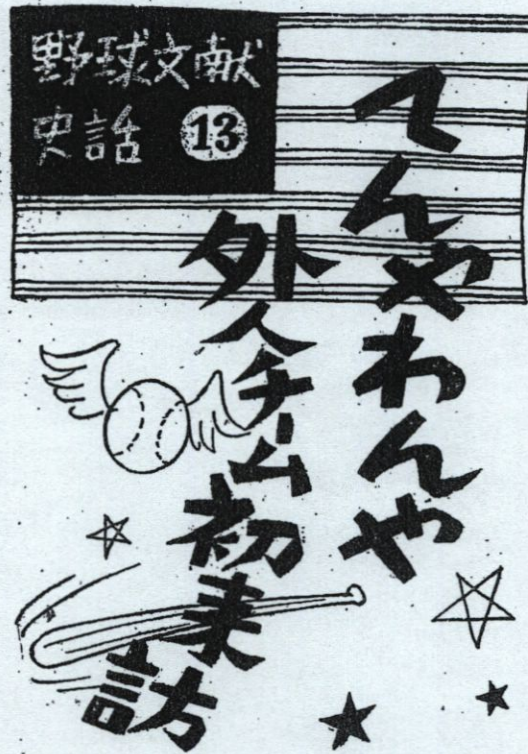 野球文献
史話 13
てんやわんや
外人チーム初来訪